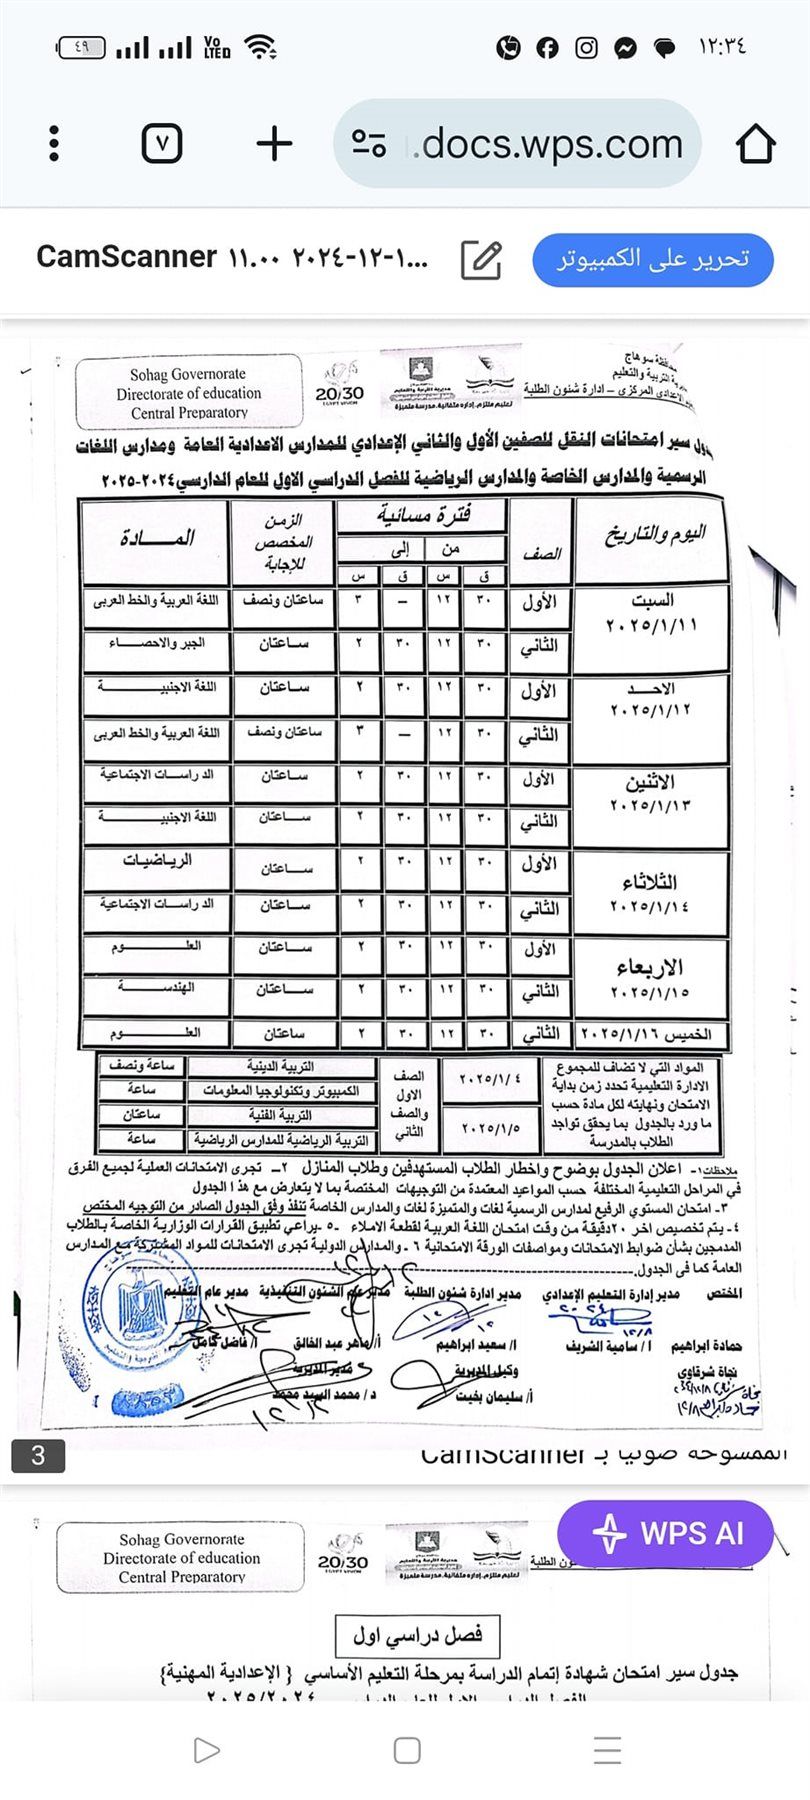 ١٢:٣٤
٤٩
Vo LTED
docs.wps.com
٧
CamScanner ١١.٠٠ ٢٠٢٤-١٢-١...
تحرير على الكمبيوتر
Sohag Governorate
Directorate of education
Central Preparatory
20/30
EGYPT VISION
تعليم ملتزم، إدارة متفانية، مدرسة متميزة
ـافظة سوهاج
التربية والتعليم
الاعدادي المركزى – ادارة شئون الطلبة
ـدول سير امتحانات النقل للصفين الأول والثاني الإعدادي للمدارس الاعدادية العامة ومدارس اللغات
الرسمية والمدارس الخاصة والمدارس الرياضية للفصل الدراسي الاول للعام الدارسي٢٠٢٤-٢٠٢٥
اليوم والتاريخ الصف فترة مسائية الزمن المخصص للإجابة المــــادة
من إلى
ق س ق س
السبت ٢٠٢٥/١/١١ الأول ٣٠ ١٢ – ٣ ساعتان ونصف اللغة العربية والخط العربى
الثاني ٣٠ ١٢ ٣٠ ٢ ساعتان الجبر والاحصــاء
الاحــد ٢٠٢٥/١/١٢ الأول ٣٠ ١٢ ٣٠ ٢ ساعتان اللغة الاجنبيـــة
الثاني ٣٠ ١٢ – ٣ ساعتان ونصف اللغة العربية والخط العربى
الاثنين ٢٠٢٥/١/١٣ الأول ٣٠ ١٢ ٣٠ ٢ ساعتان الدراسـات الاجتماعية
الثاني ٣٠ ١٢ ٣٠ ٢ ساعتان اللغة الاجنبيـــة
الثلاثاء ٢٠٢٥/١/١٤ الأول ٣٠ ١٢ ٣٠ ٢ ساعتان الرياضيـات
الثاني ٣٠ ١٢ ٣٠ ٢ ساعتان الدراسـات الاجتماعية
الاربعاء ٢٠٢٥/١/١٥ الأول ٣٠ ١٢ ٣٠ ٢ ساعتان العلـــوم
الثاني ٣٠ ١٢ ٣٠ ٢ ساعتان الهندســـة
الخميس ٢٠٢٥/١/١٦ الثاني ٣٠ ١٢ ٣٠ ٢ ساعتان العلـــوم
المواد التي لا تضاف للمجموع
الادارة التعليمية تحدد زمن بداية
الامتحان ونهايته لكل مادة حسب
ما ورد بالجدول بما يحقق تواجد
الطلاب بالمدرسة
٢٠٢٥/١/٤
٢٠٢٥/١/٥
الصف الاول والصف الثاني
التربية الدينية ساعة ونصف
الكمبيوتر وتكنولوجيا المعلومات ساعة
التربية الفنية ساعتان
التربية الرياضية للمدارس الرياضية ساعة
ملاحظات١- اعلان الجدول بوضوح واخطار الطلاب المستهدفين وطلاب المنازل ٢ــ تجرى الامتحانات العملية لجميع الفرق
في المراحل التعليمية المختلفة حسب المواعيد المعتمدة من التوجيهات المختصة بما لا يتعارض مع هذا الجدول
٣- امتحان المستوي الرفيع لمدارس الرسمية لغات والمتميزة لغات والمدارس الخاصة تنفذ وفق الجدول الصادر من التوجيه المختص
٤- يتم تخصيص اخر ٢٠دقيقة من وقت امتحان اللغة العربية لقطعة الاملاء ٥- يراعي تطبيق القرارات الوزارية الخاصة بالطلاب
المدمجين بشأن ضوابط الامتحانات ومواصفات الورقة الامتحانية ٦- والمدارس الدولية تجرى الامتحانات للمواد المشتركة مع المدارس
العامة كما فى الجدول.
المختص مدير إدارة التعليم الإعدادي مدير ادارة شئون الطلبة مدير عام الشئون التنفيذية مدير عام التعليم
حمادة ابراهيم أ / سامية الشريف ا/ سعيد ابراهيم أ/ ماهر عبد الخالق أ/ فاضل كامل
نجاة شرقاوي وكيل المديرية مدير المديرية
أ/ سليمان بخيت د / محمد السيد محمد
3
الممسوحة ضوئيا بـ CamScanner
WPS AI
Sohag Governorate
Directorate of education
Central Preparatory
20/30
EGYPT VISION
تعليم ملتزم، إدارة متفانية، مدرسة متميزة
ـئون الطلبة
فصل دراسي اول
جدول سير امتحان شهادة إتمام الدراسة بمرحلة التعليم الأساسي { الإعدادية المهنية}